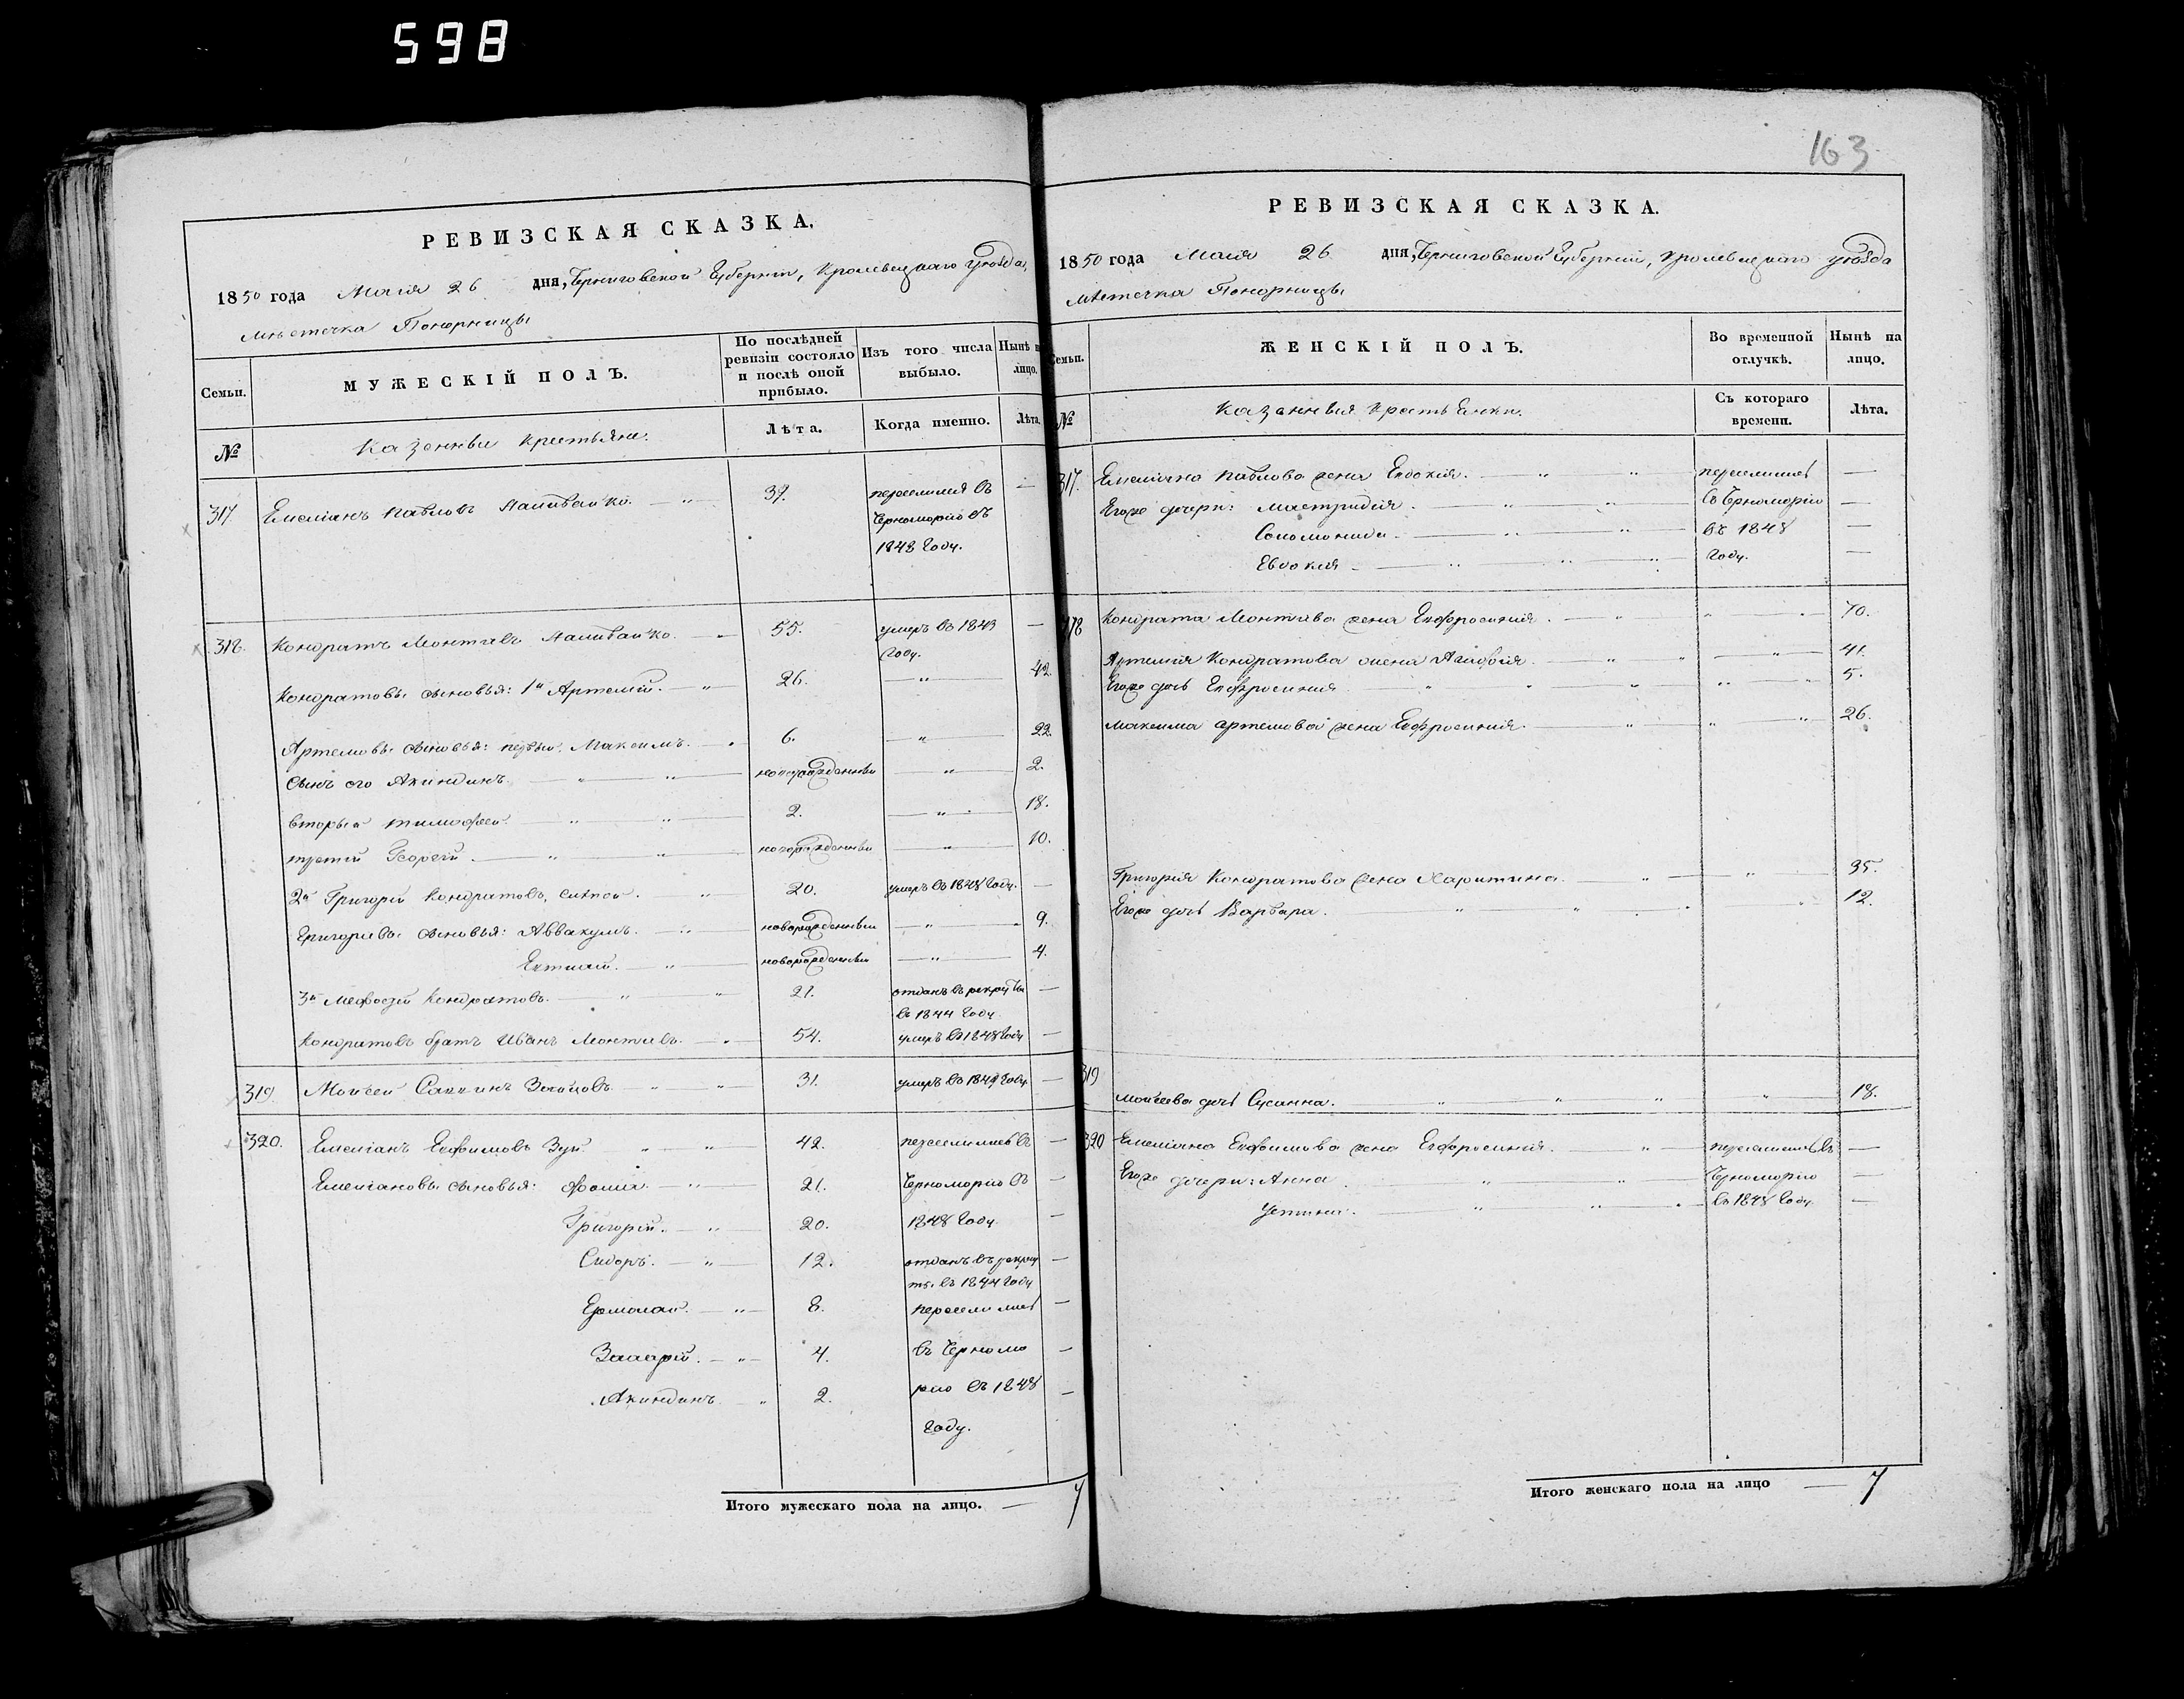 598
163
РЕВИЗСКАЯ СКАЗКА.
1850 года Маія 26 дня, Черниговской Губерніи, Кролевецкаго уѣзда,
мѣстечка Понорницы
Семьи.
МУЖЕСКІЙ ПОЛЪ.
По послѣдней ревизіи состояло и послѣ оной прибыло.
Изъ того числа выбыло.
Нынѣ на лицо.
№
Казенные крестьяне.
Лѣта.
Когда именно.
Лѣта.
317. Емеліанъ Павловъ Наливайко. — " — 37. переселился въ —
Черноморію въ
1848 году.
318. Кондратъ Леонтіевъ Наливайко. " 55. умеръ въ 1843 —
году.
Кондратовы сыновья: 1й Артемій. — " 26. — " — 42
Артемовы сыновья: первый Максимъ. — " 6. — " — 22
сынъ его Акиндинъ — " — " — новорожденный — " — 2.
вторый Тимофей. — " — " — 2. — " — 18.
третій Георгій. — " — " — новорожденный — " — 10.
2й Григорій Кондратовъ, — " 20. умеръ въ 1848 году. —
Григоріевы сыновья: Аввакумъ. — " новорожденный — " — 9.
— " новорожденный — " — 4.
3й Мефодій Кондратовъ. " — " 21. отданъ въ рекруты —
въ 1844 году
Кондратовъ братъ Иванъ Леонтіевъ. — " 54. умеръ въ 1848 году —
319. Моисей Саввинъ — " — " 31. умеръ въ 1849 году. —
320. Емеліанъ Евфимовъ Зуй. " — " 42. переселились въ —
Емеліановы сыновья: Фома. — " — 21. Черноморію въ —
Григорій. — " 20. 1848 году. —
Сидоръ. — " — 12. отданъ въ рекру —
ты. въ 1844 году
Ермолай. — " — 8. переселились —
Захарій. — " — 4. въ Черномо —
Акиндинъ " 2. рію въ 1848 —
году.
Итого мужескаго пола на лицо. — 7
РЕВИЗСКАЯ СКАЗКА.
1850 года Маія 26 дня, Черниговской Губерніи, Кролевецкаго уѣзда
мѣстечка Понорницы
Семьи.
ЖЕНСКІЙ ПОЛЪ.
Во временной отлучкѣ.
Нынѣ на лицо.
№
Казенныя крестьянки.
Съ котораго времени.
Лѣта.
317. Емеліана Павлова жена Евдокія. — " — " — переселились —
Егоже дочери: — " — " — въ Черноморію —
Соломонида. — " — " — въ 1848 —
Евдокія — " — " — " году. —
318 Кондрата Леонтіева жена Евфросинія. — " — " — " — 70.
Артемія Кондратова жена Агафія. — " — " — " — 41.
Егоже дочь Евфросинія " " " " — " 5.
Максима Артемова жена Евфросинія. — " — " — " 26.
Григорія Кондратова жена Харитина. " — " 35.
Егоже дочь Варвара. — " — " — " — " 12.
319
Моисеева дочь Сусанна. — " — " — " — " — 18.
320 Емеліана Евфимова жена Евфросинія. — " — переселились въ —
Егоже дочери: Анна — " — " — Черноморію —
Устина. — " — " — " въ 1848 году. —
Итого женскаго пола на лицо — 7